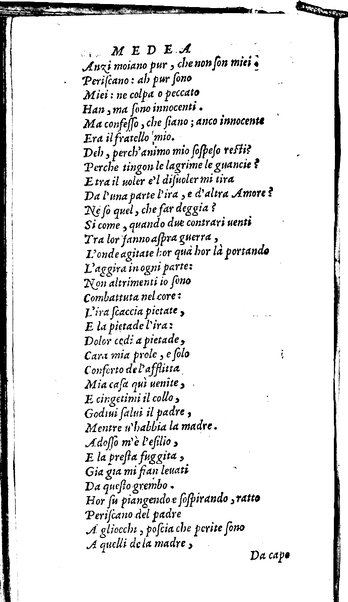 MEDEA
Anzi moiano pur, che non son miei.
Periscano: ah pur sono
Miei: ne colpa o peccato
Han, ma sono innocenti.
Ma confesso, che siano; anco innocente
Era il fratello mio.
Deh, perch'animo mio sospeso resti?
Perche tingon le lagrime le guancie?
E tra il uoler e'l disuoler mi tira
Da l'una parte l'ira, e d'altra Amore?
Ne so quel, che far deggia?
Si come, quando due contrari uenti
Tra lor fanno aspra guerra,
L'onde agitate hor quà hor là portando
L'aggira in ogni parte:
Non altrimenti io sono
Combattuta nel core:
L'ira scaccia pietate,
E la pietade l'ira:
Dolor cedi a pietade,
Cara mia prole, e solo
Conforto de l'afflitta
Mia casa quì uenite,
E cingetimi il collo,
Godiui salui il padre,
Mentre u'habbia la madre.
Adosso m'è l'esilio,
E la presta fuggita,
Gia gia mi fian leuati
Da questo grembo.
Hor su piangendo e sospirando, ratto
Periscano del padre
A gliocchi, poscia che perite sono
A quelli de la madre,
Da capo